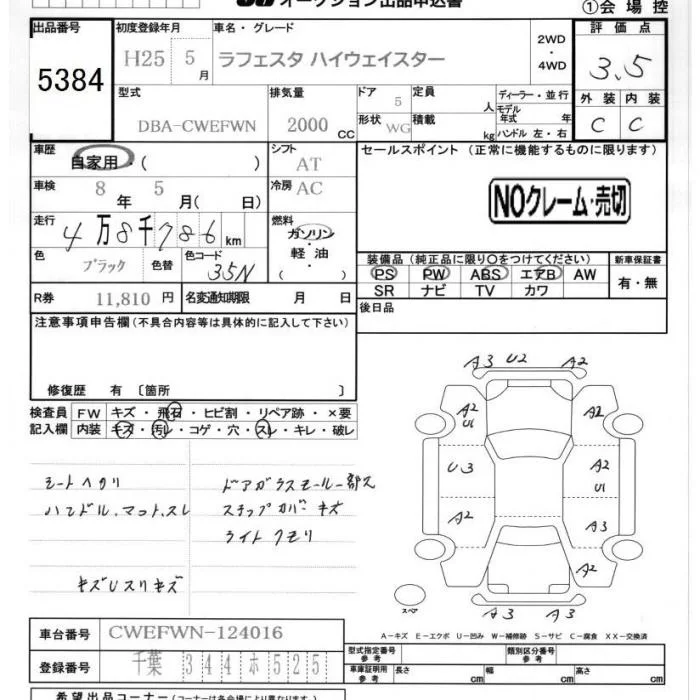 オークション出品申込書
①会場控
出品番号 初度登録年月 車名・グレード 2WD・4WD 評価点
5384 H25 5月 ラフェスタ ハイウェイスター 3.5
型式 排気量 ドア 定員 人 ディーラー・並行 外装 内装
DBA-CWEFWN 2000 CC 5 モデル年式 年 C C
形状 WG 積載 kg ハンドル 左・右
車歴 自家用・( ) シフト AT セールスポイント (正常に機能するものに限ります)
車検 8年 5月( 日) 冷房 AC NOクレーム・売切
走行 4万8千786km 燃料 ガソリン・軽油( )
色 ブラック 色替 色コード 35N
装備品 (純正品に限り○をつけてください) 新車保証書
PS PW ABS エアB AW 有・無
SR ナビ TV カワ
R券 11,810円 名変通知期限 月 日 後日品
注意事項申告欄(不具合内容等は具体的に記入して下さい)
修復歴 有〔箇所 〕
検査員 FW キズ・飛石・ヒビ割・リペア跡・×要
記入欄 内装 キズ・汚レ・コゲ・穴・スレ・キレ・破レ
シートヘタリ ドアガラスモール一部ス
ハンドル、マット、スレ ステップカバーキズ
ライトクモリ
キズUスリキズ
A3 U2 A2
A2 U1 A2
U3 A2 U1
A2 A3
A2
A3 A3
スペ
A-キズ E-エクボ U-凹み W-補修跡 S-サビ C-腐食 XX-交換済
車台番号 CWEFWN-124016
登録番号 千葉 344 ホ 525
型式指定番号 参考 類別区分番号 参考
車庫証明用 参考 長さ cm 幅 cm 高さ cm
希望出品コーナー(コーナーは各会場により異なります)